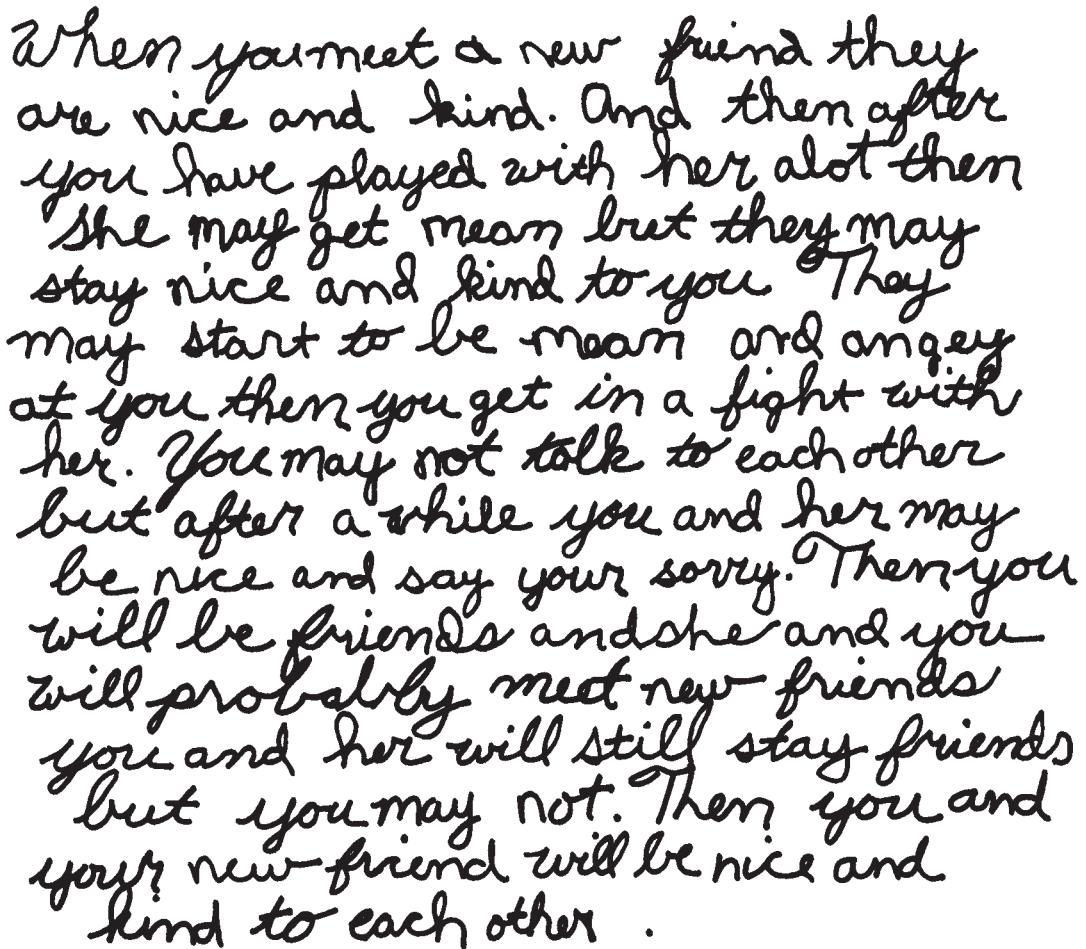 When you meet a new friend they
are nice and kind. And then after
you have played with her alot then
she may get mean but they may
stay nice and kind to you They
may start to be mean and angey
at you then you get in a fight with
her. You may not talk to each other
but after a while you and her may
be nice and say your sorry. Then you
will be friends and she and you
will probably meet new friends
you and her will still stay friends
but you may not. Then you and
your new friend will be nice and
kind to each other .